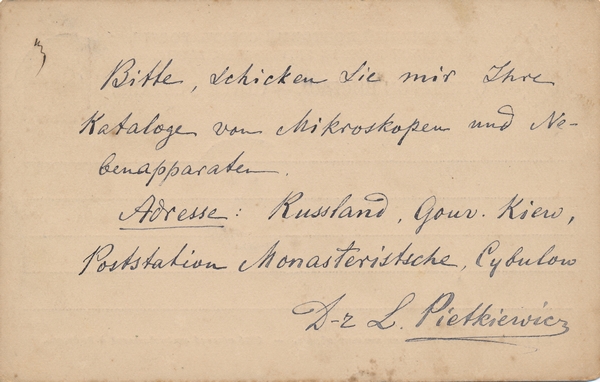 Bitte, schicken Sie mir Ihre
Kataloge von Mikroskopen und Ne-
benapparaten.
Adresse: Russland, Gouv. Kiew,
Poststation Monasteristsche, Cybulow
D-r L. Pietkiewicz